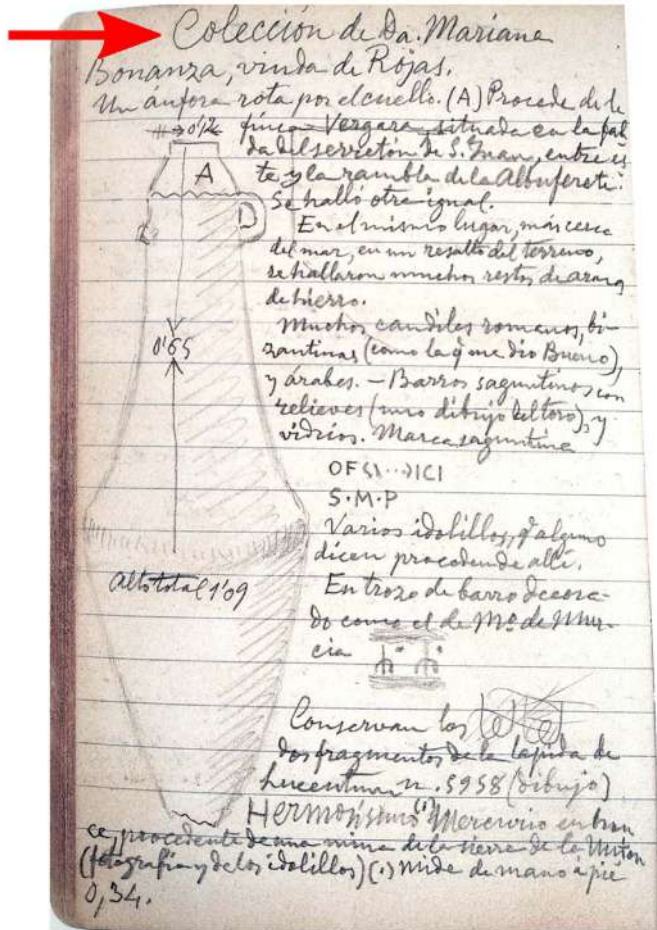 Colección de Da. Mariana
Bonanza, viuda de Rojas.
Un ánfora rota por el cuello. (A) Procede de la
0'12
finca Vergara, situada en la fal-
da del serretón de S. Juan, entre és-
te y la rambla de la Albufereta.
Se halló otra igual.
A
En el mismo lugar, más cerca
del mar, en un resalto del terreno,
se hallaron muchos restos de
de hierro.
0'65
Muchos candiles romanos, bi-
zantinas (como la q me dio Bueno),
y árabes. – Barros saguntinos con
relieves (uno dibujo del toro), y
vidrios. Marca saguntina
OF ICI
S·M·P
Varios idolillos, q alguno
dicen procedende allí.
Alto total 1'09
En trozo de barro decora-
do como el de Mo. de Mur-
cia
Conservan los
dos fragmentos de la lápida de
Lucentum n. 5958 (dibujo)
Hermosísimo (1) Mercurio en bron
ce, procedente de una mina de la sierra de la Unión
(fotografía y de los idolillos) (1) Mide de mano á pie
0,34.